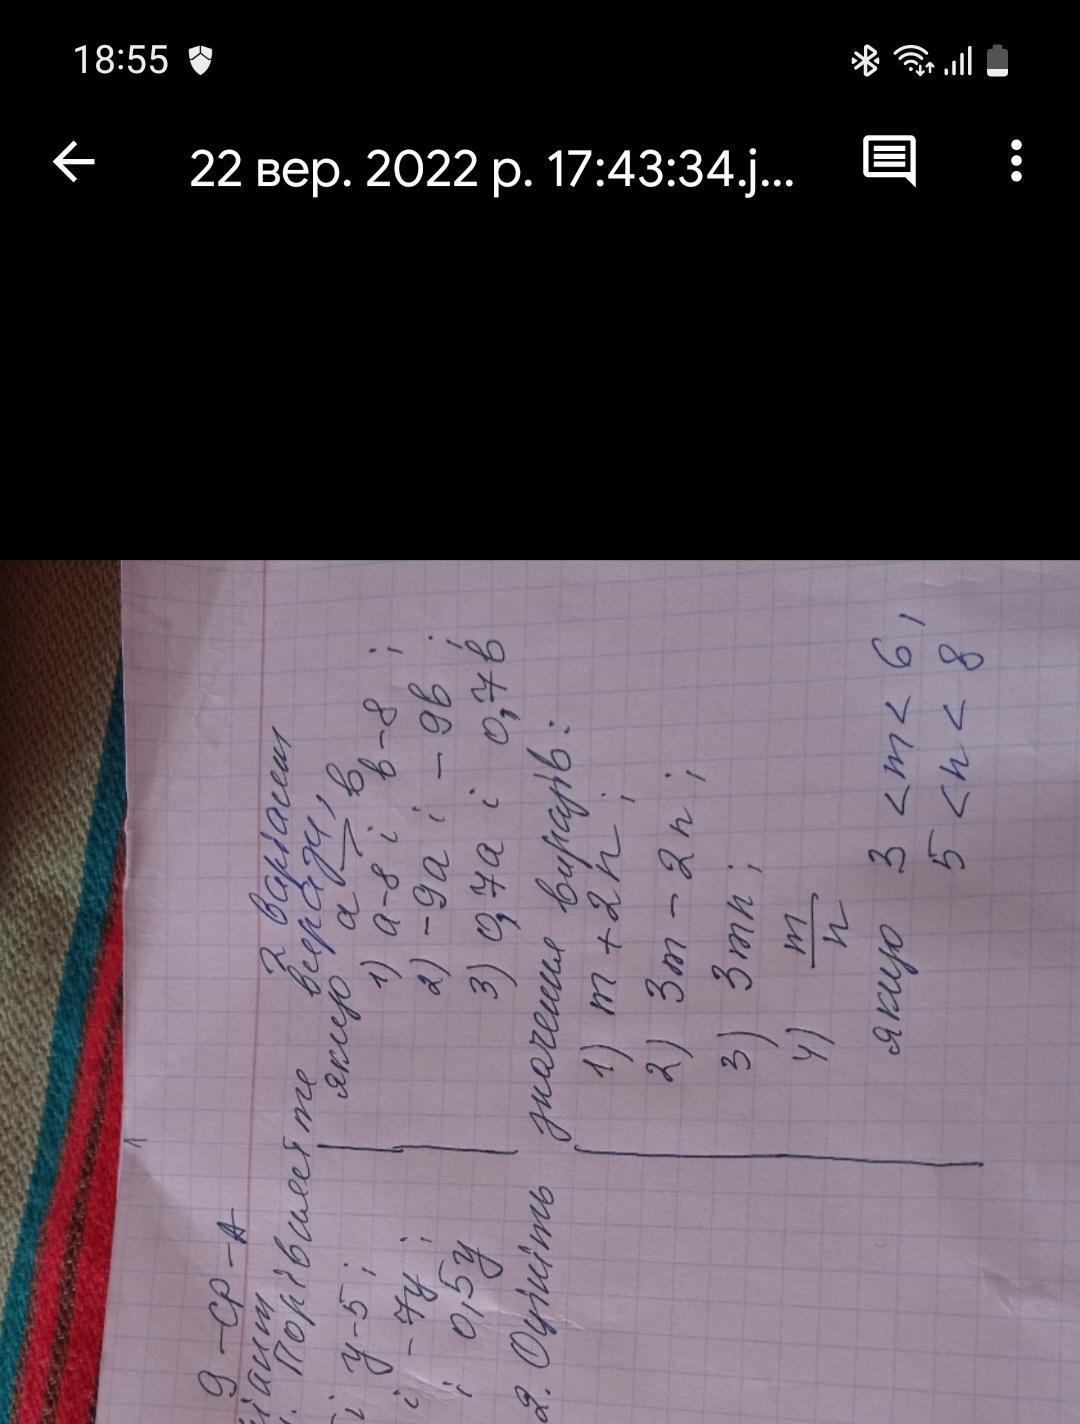 18:55
22 вер. 2022 р. 17:43:34.j...
9-СР-А
2 варіант
Порівняйте вирази,
якщо a > в
1) a-8 і в-8;
2) -9a і -9в;
3) 0,7a і 0,7в
і y-5;
і -7y;
і 0,5y
2. Оцініть значення виразів:
1) m + 2n;
2) 3m - 2n;
3) 3mn;
4) m/n
якщо 3 < m < 6,
5 < n < 8